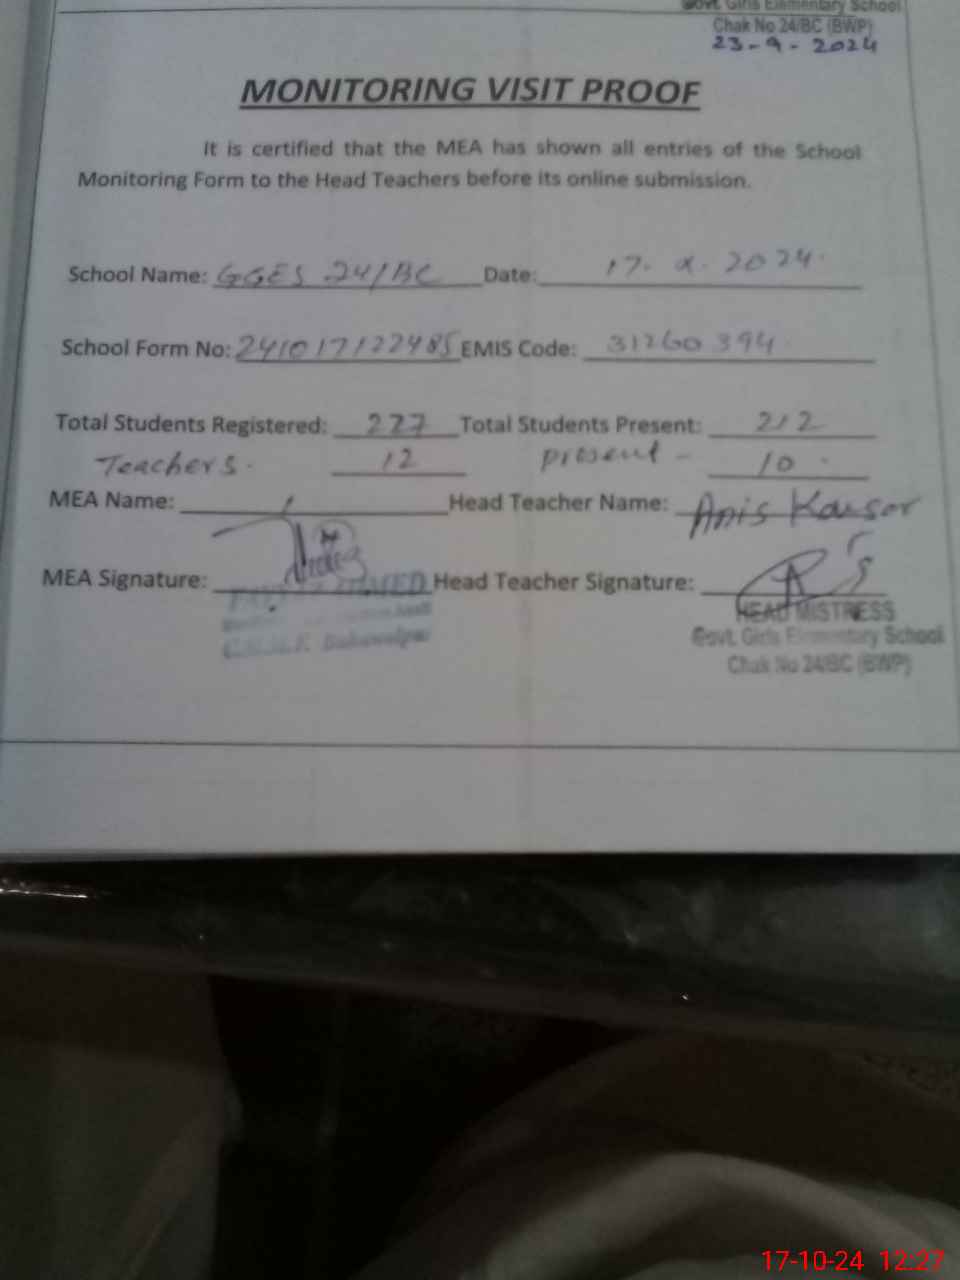 Govt. Girls Elementary School
Chak No 24/BC (BWP)
23-9-2024
MONITORING VISIT PROOF
It is certified that the MEA has shown all entries of the School
Monitoring Form to the Head Teachers before its online submission.
School Name: GGES 24/BC Date: 17. . 2024.
School Form No: 241017122485 EMIS Code: 31260394
Total Students Registered: 227 Total Students Present: 212
Teachers. 12 present - 10.
MEA Name: Head Teacher Name: Anis Kausar
MEA Signature: Head Teacher Signature:
AHMED
Bahawalpur
HEAD MISTRESS
Govt. Girls Elementary School
Chak No 24/BC (BWP)
17-10-24 12:27